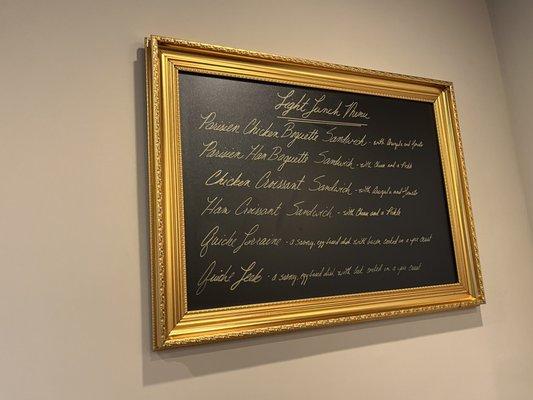 Light Lunch Menu
Parisien Chicken Baguette Sandwich - with Arugula and Tomato
Parisien Ham Baguette Sandwich - with Cheese and a Pickle
Chicken Croissant Sandwich - with Arugula and Tomato
Ham Croissant Sandwich - with Cheese and a Pickle
Quiche Lorraine - a savory, egg based dish with bacon cooked in a pie crust
Quiche Leek - a savory, egg based dish with leek cooked in a pie crust